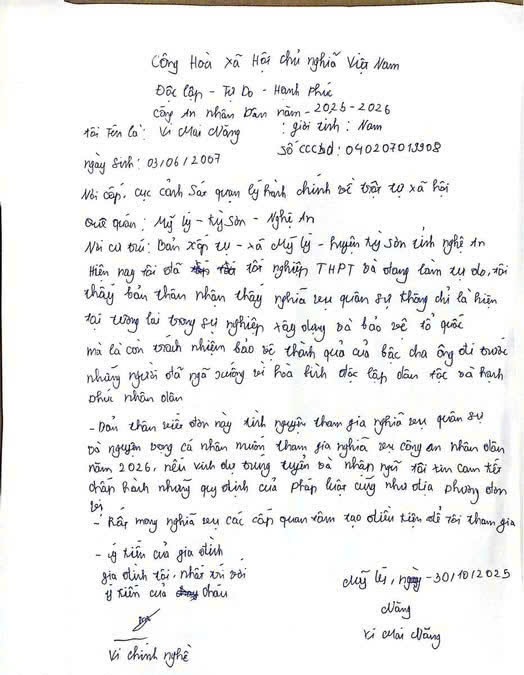 Công Hoà Xã Hội chủ nghĩa Việt Nam
Độc lập - Tự Do - Hạnh Phúc
công An nhân Dân năm - 2025 - 2026
Tôi Tên là: Vi Mai Năng : giới tính : Nam
ngày sinh : 03/06/2007 số CCCD : 040207013908
Nơi cấp, cục cảnh Sát quản lý hành chính về trật tự xã hội
Quê quán : Mỹ lý - Kỳ Sơn - Nghệ An
Nơi cư trú : Bản xốp tụ - xã Mỹ lý - huyện Kỳ Sơn tỉnh nghệ An
Hiện nay tôi đã tôi nghiệp THPT và đang làm tự do, tôi
thấy bản thân nhận thấy nghĩa vụ quân sự thông chỉ là hiện
tại tương lai trong sự nghiệp xây dựng và bảo vệ tổ quốc
mà là còn trách nhiệm bảo vệ thành quả của bậc cha ông đi trước
những người đã ngã xuống vì hòa bình độc lập dân tộc và hạnh
phúc nhân dân
- Bản thân viết đơn này tình nguyện tham gia nghĩa vụ quân sự
và nguyện vọng cá nhân muốn tham gia nghĩa vụ công an nhân dân
năm 2026, nếu vinh dự trúng tuyển và nhập ngũ tôi xin cam kết
chấp hành những quy định của pháp luật cũng như địa phương đơn
vị
- Rất mong nghĩa vụ các cấp quan tâm tạo điều kiện để tôi tham gia
- ý kiến của gia đình
gia đình tôi, nhất trí với
ý kiến của cháu
Mỹ lý, ngày - 30/10/2025
Năng
Vi Mai Năng
Vi chính nghề